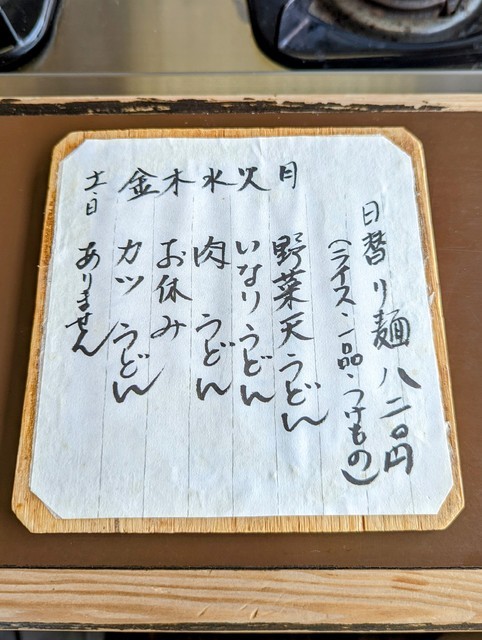 日替り麺 八二〇円
(ライス・一品・つけもの)
月 野菜天うどん
火 いなりうどん
水 肉うどん
木 お休み
金 カツうどん
土・日 ありません